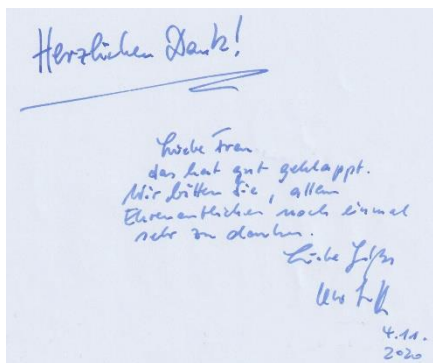 Herzlichen Dank!
Liebe Frau
das hat gut geklappt.
Wir bitten Sie, allen
Ehrenamtlichen noch einmal
sehr zu danken.
Liebe Grüße
Uwe
4.11.
2020